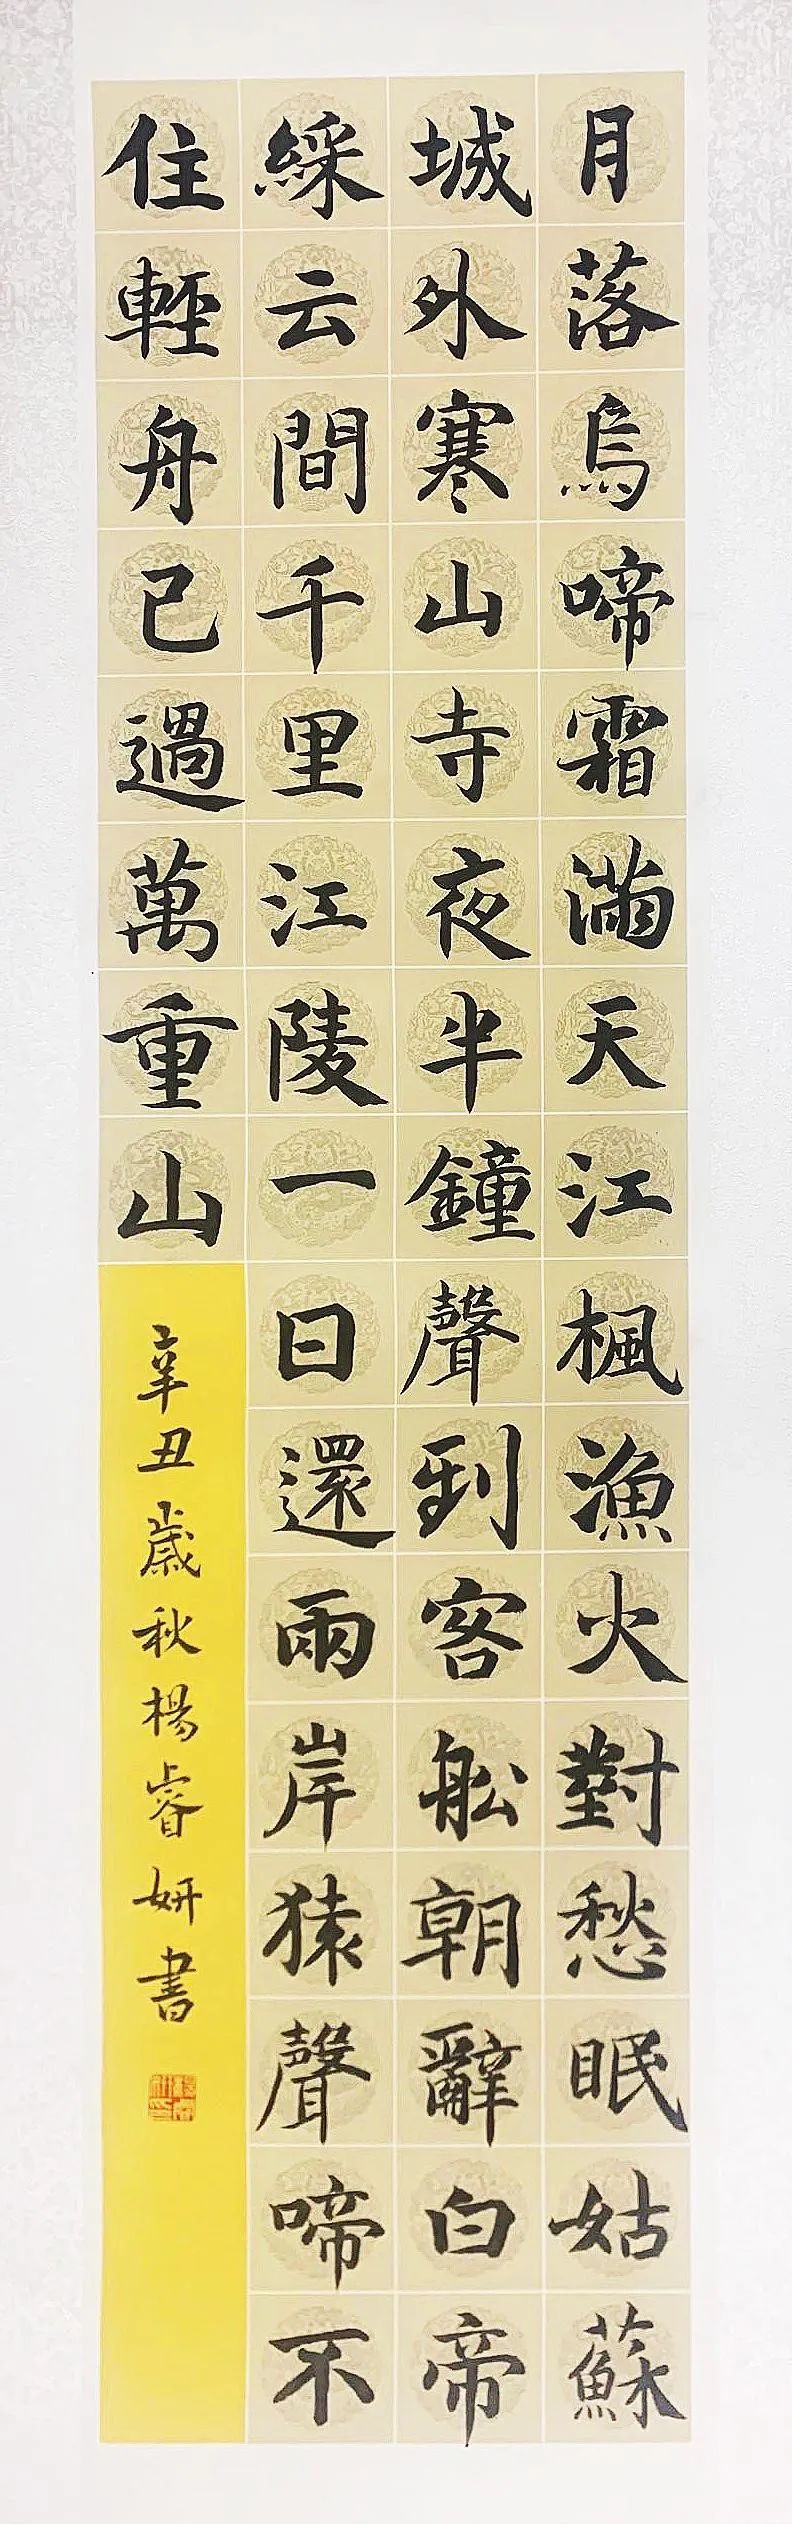 月落烏啼霜滿天江楓漁火對愁眠姑蘇
城外寒山寺夜半鐘聲到客船朝辭白帝
綵云間千里江陵一日還兩岸猿聲啼不
住輕舟已過萬重山
辛丑歲秋楊睿妍書